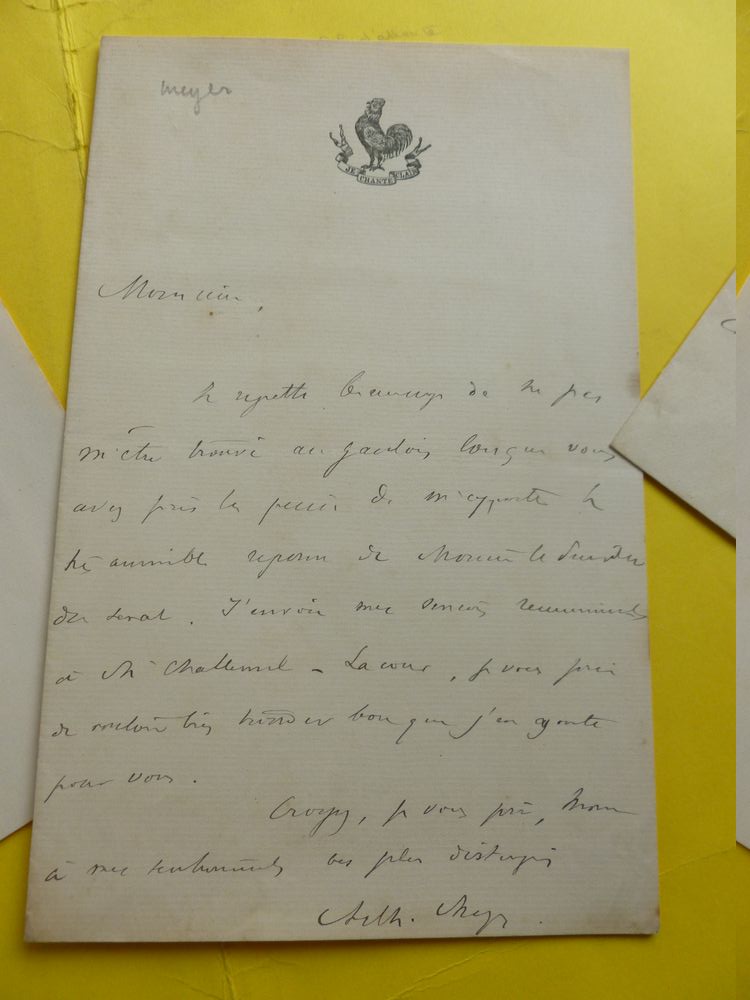 meyer
JE CHANTE CLAIR
Monsieur,
Je regrette beaucoup de ne pas
m'être trouvé au Gaulois lorsque vous
avez pris la peine de m'apporter la
très aimable réponse de Monsieur le Président
du Senat. J'envoie mes sincères remerciements
à Mr Challemel-Lacour, je vous prie
de vouloir bien trouver bon que j'en ajoute
pour vous.
Croyez, je vous prie, Mons
à mes sentiments les plus distingués
Arth. Meyer.